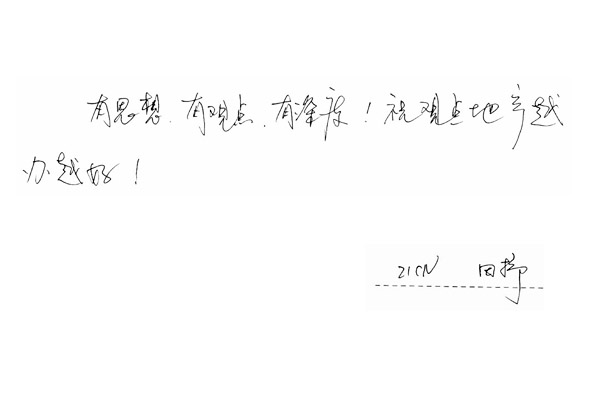 有思想、有观点、有深度！祝观点地产越
办越好！
21CN 田